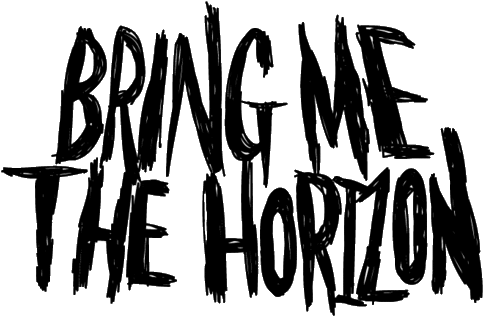 BRING ME
THE HORIZON